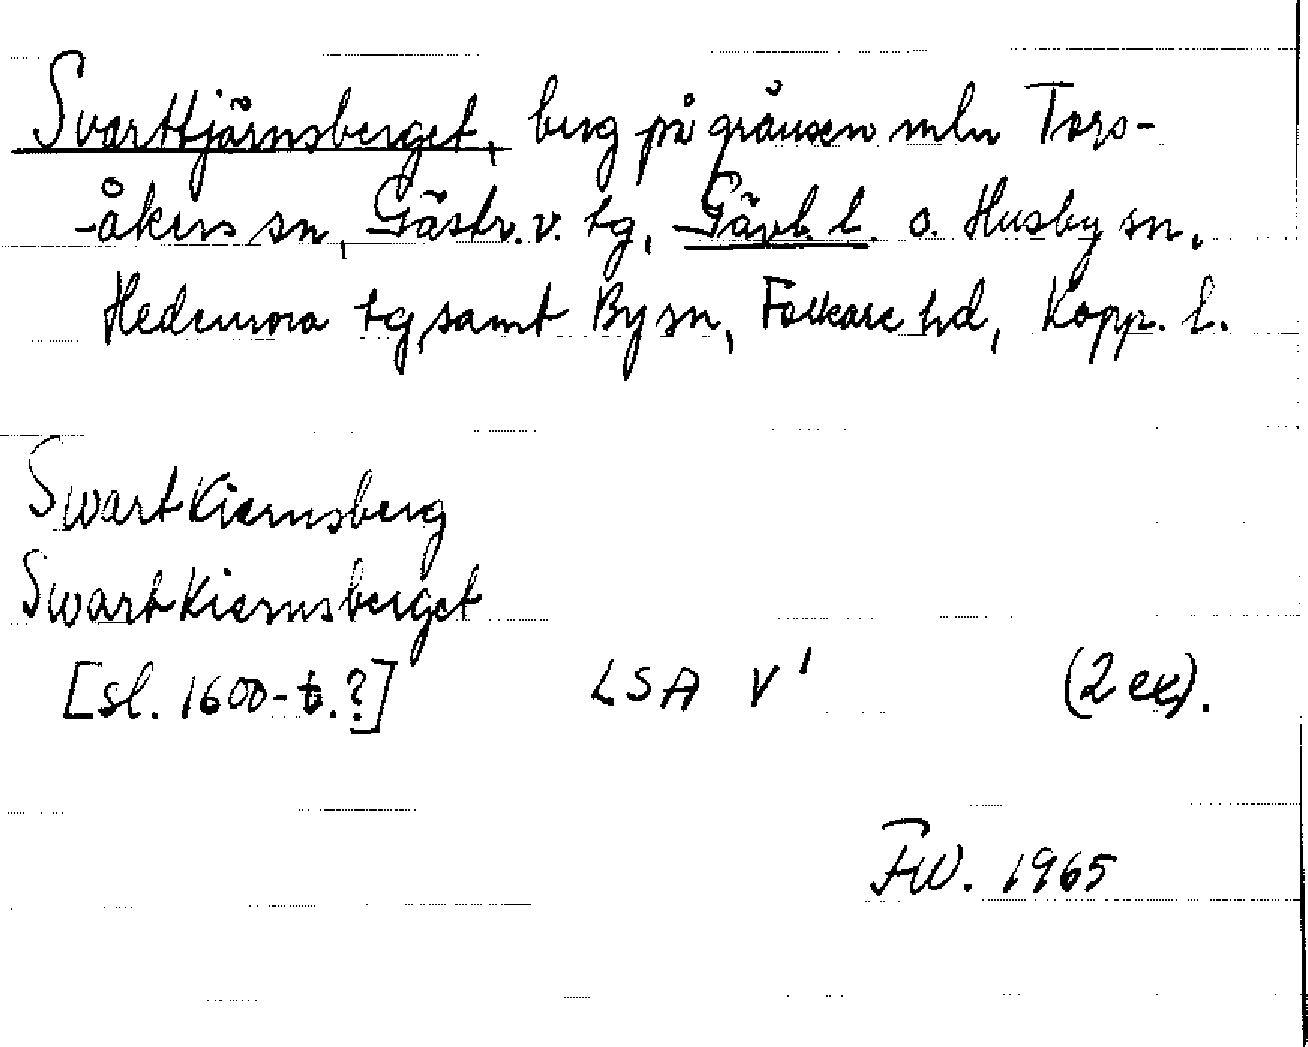 Svarttjärnsberget, berg på gränsen mln Tors-
-åkers sn, Gästr. v. tg, Gävl. l. o. Husby sn,
Hedemora tg samt By sn, Folkare hd, Kopp. l.
Swartkiernsberg
Swartkiernsberget
[sl. 1600-t.?] LSA V¹ (2 ex).
FW. 1965